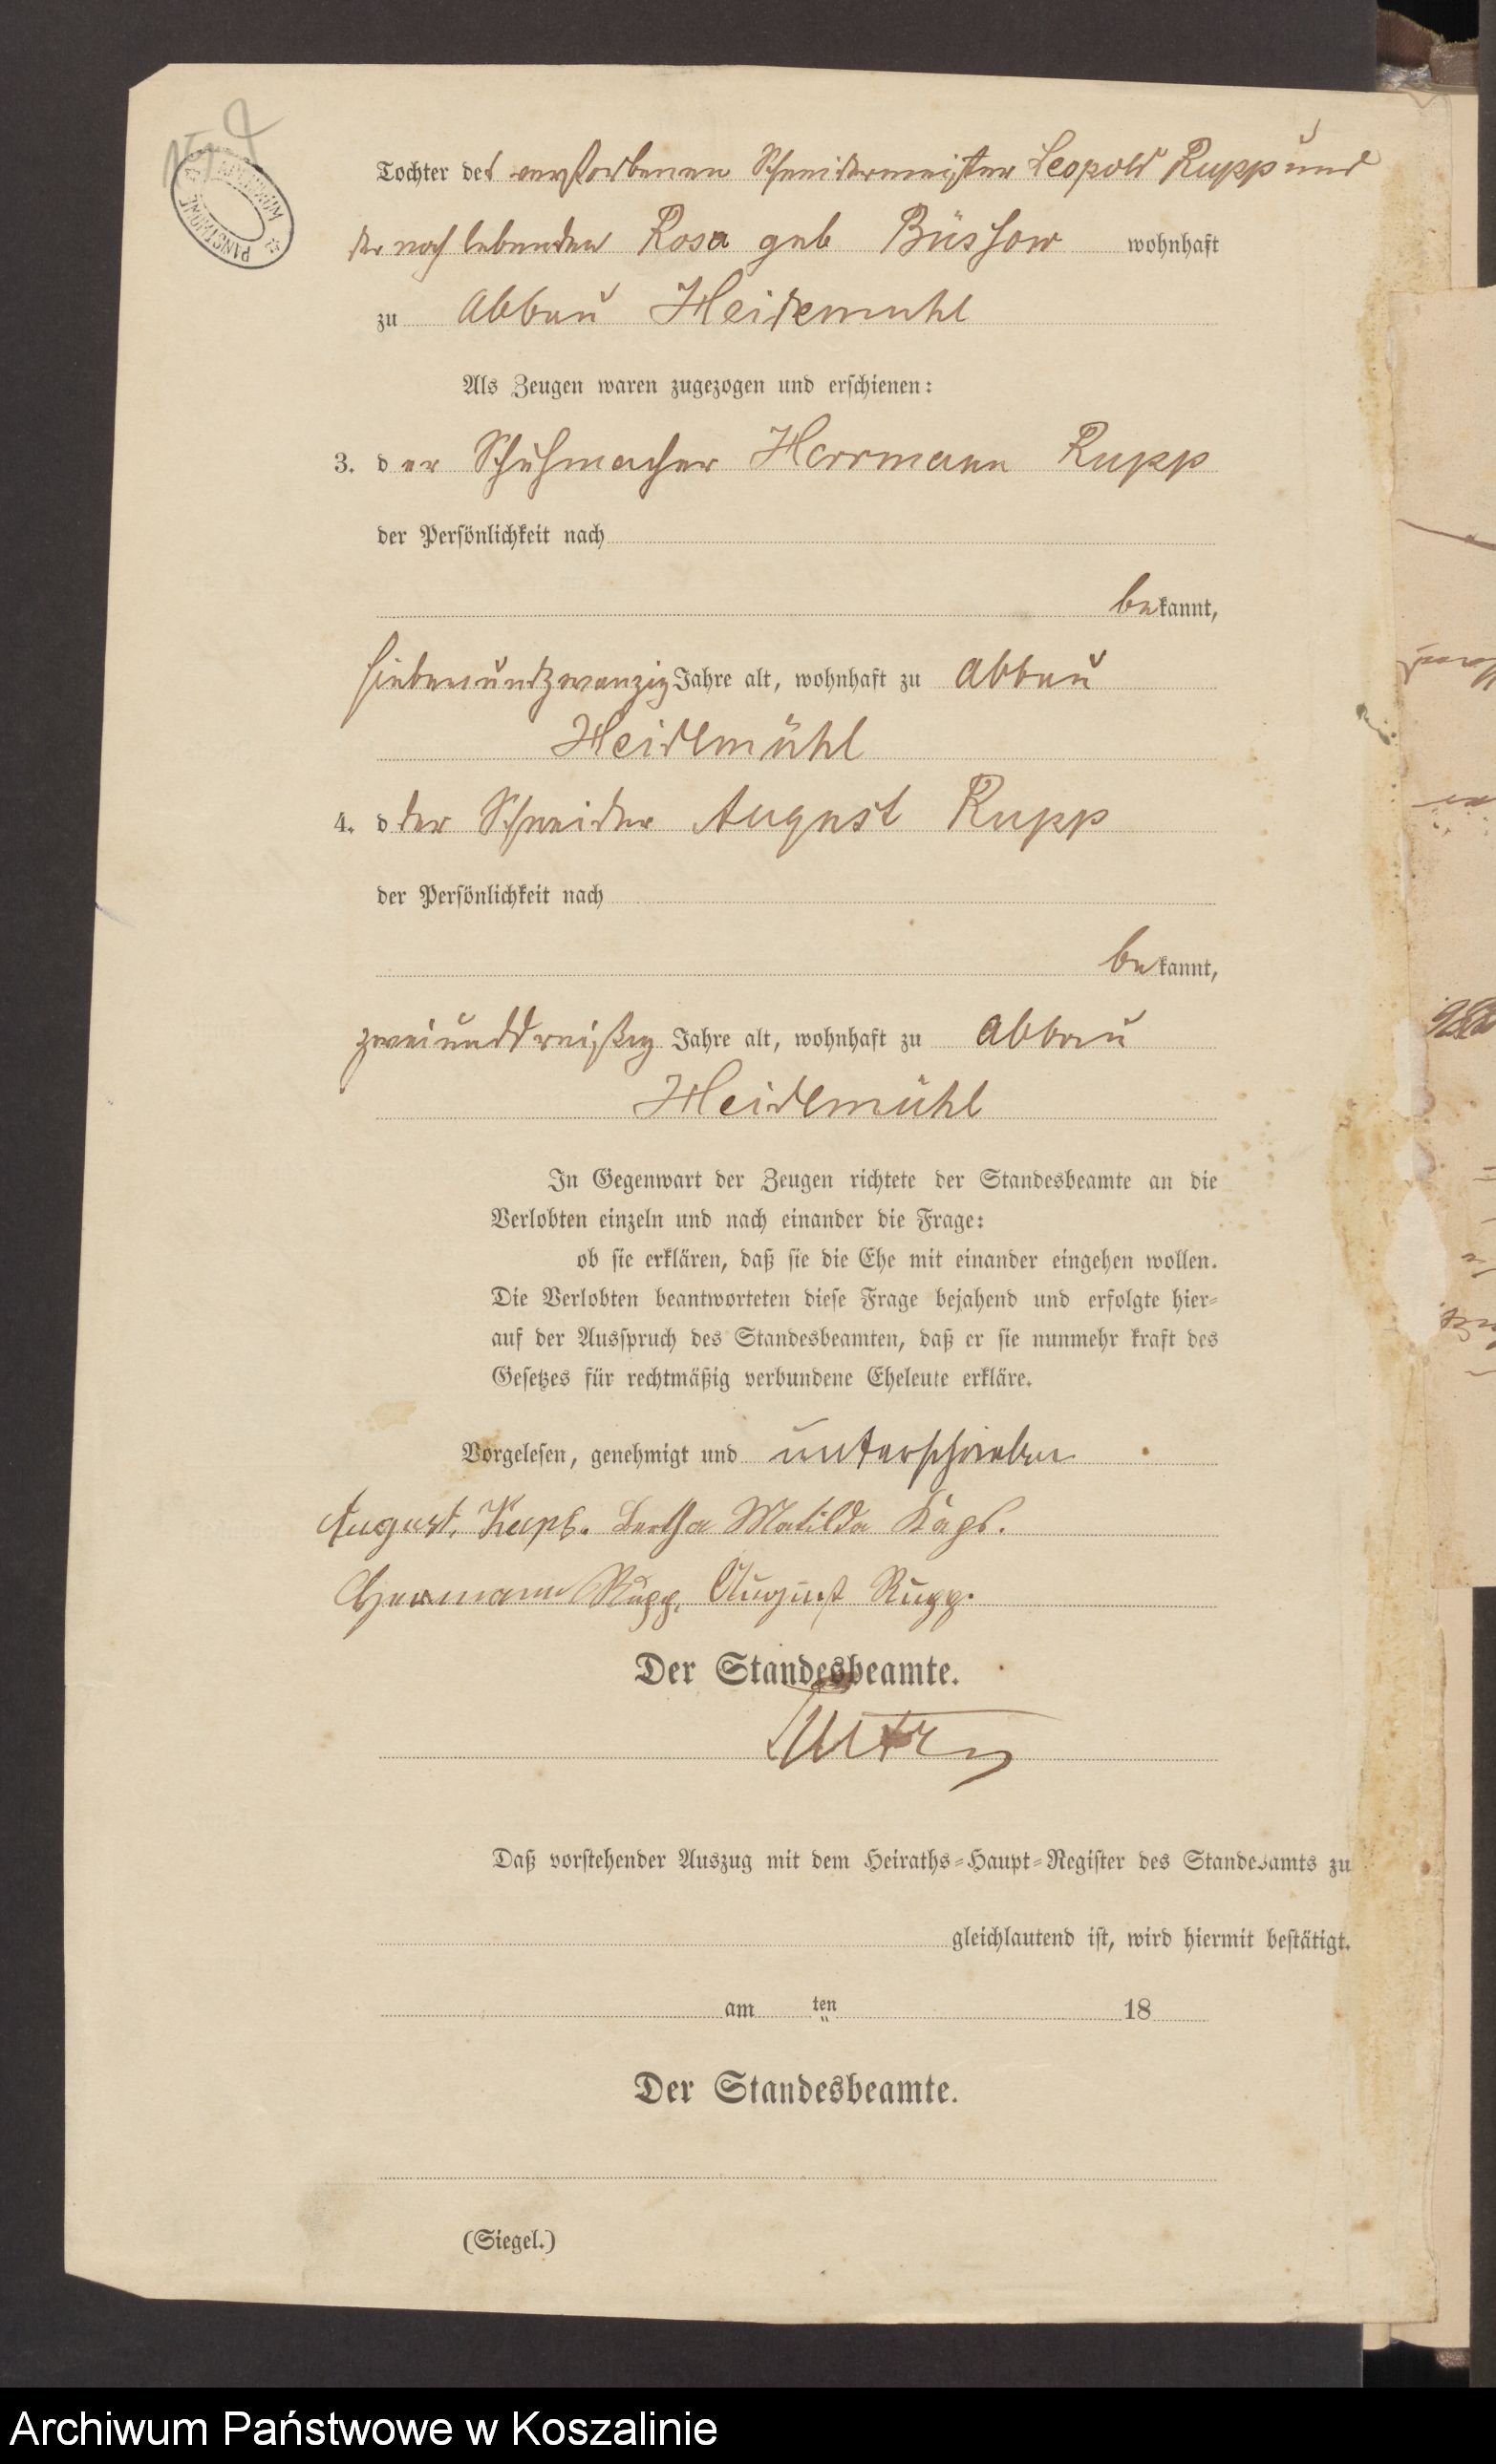 Tochter des verstorbenen Schneidermeister Leopold Rupp und
der noch lebenden Rosa geb Büssow wohnhaft
zu Abbau Heidemuhl
Als Zeugen waren zugezogen und erschienen:
3. der Schuhmacher Herrmann Rupp
der Persönlichkeit nach
bekannt,
siebenundzwanzig Jahre alt, wohnhaft zu Abbau
Heidemühl
4. d der Schneider August Rupp
der Persönlichkeit nach
bekannt,
zweiunddreißig Jahre alt, wohnhaft zu Abbau
Heidemühl
In Gegenwart der Zeugen richtete der Standesbeamte an die
Verlobten einzeln und nach einander die Frage:
ob sie erklären, daß sie die Ehe mit einander eingehen wollen.
Die Verlobten beantworteten diese Frage bejahend und erfolgte hier-
auf der Ausspruch des Standesbeamten, daß er sie nunmehr kraft des
Gesetzes für rechtmäßig verbundene Eheleute erkläre.
Vorgelesen, genehmigt und unterschrieben
August. Bertha Matilda
Hermann Rupp, August Rupp.
Der Standesbeamte.
Daß vorstehender Auszug mit dem Heiraths-Haupt-Register des Standesamts zu
gleichlautend ist, wird hiermit bestätigt.
am ten 18
Der Standesbeamte.
(Siegel.)
Archiwum Państwowe w Koszalinie